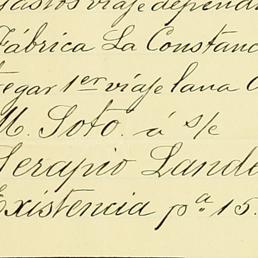 Gastos viaje depend
Fábrica La Constanc
egar 1er viaje lana
M. Soto. á s/c
Serapio Lande
Existencia pa 15.